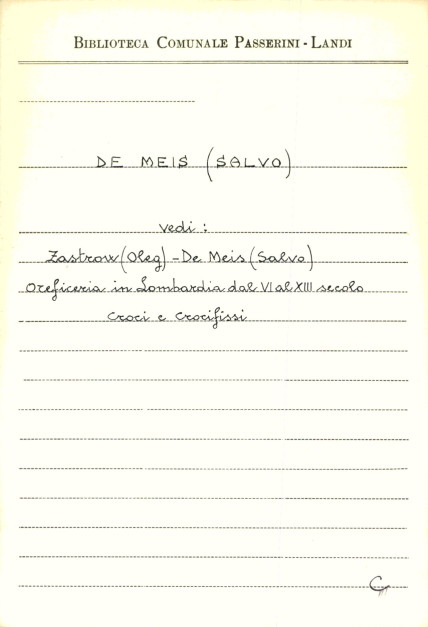 BIBLIOTECA COMUNALE PASSERINI - LANDI
DE MEIS (SALVO)
vedi :
Zastrow (Oleg) - De Meis (Salvo)
Oreficeria in Lombardia dal VI al XIII secolo
Croci e crocifissi